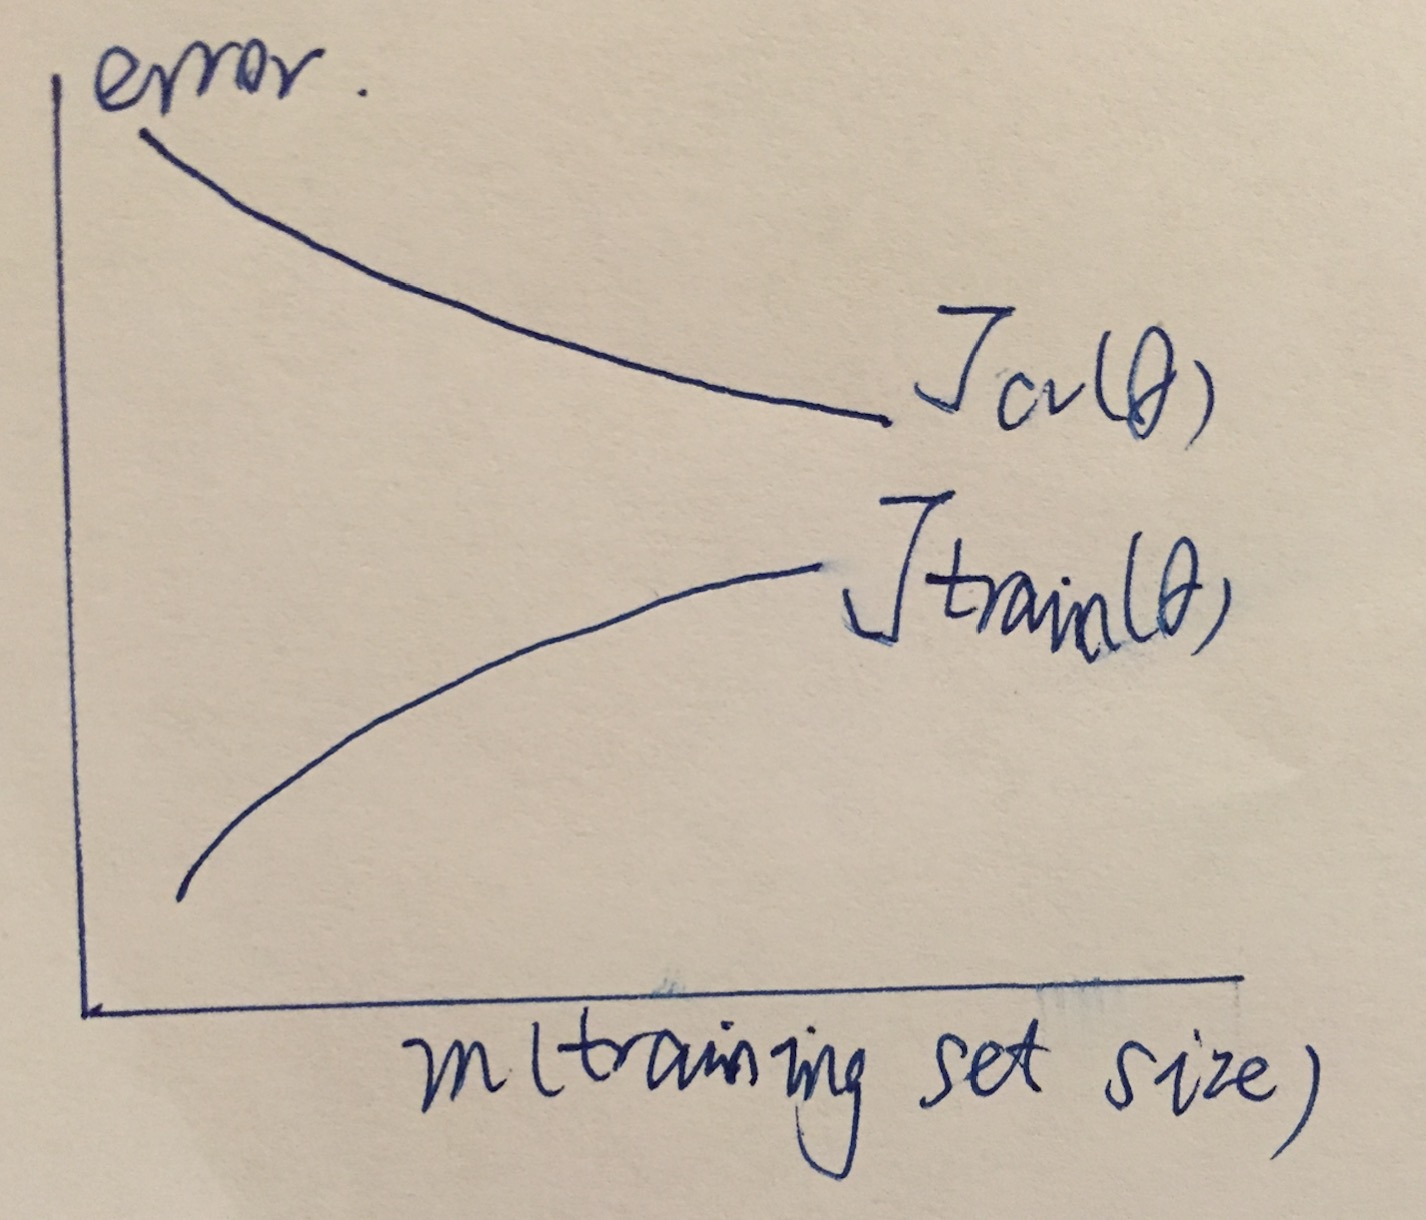 error.
Jcv(θ)
Jtrain(θ)
m(training set size)